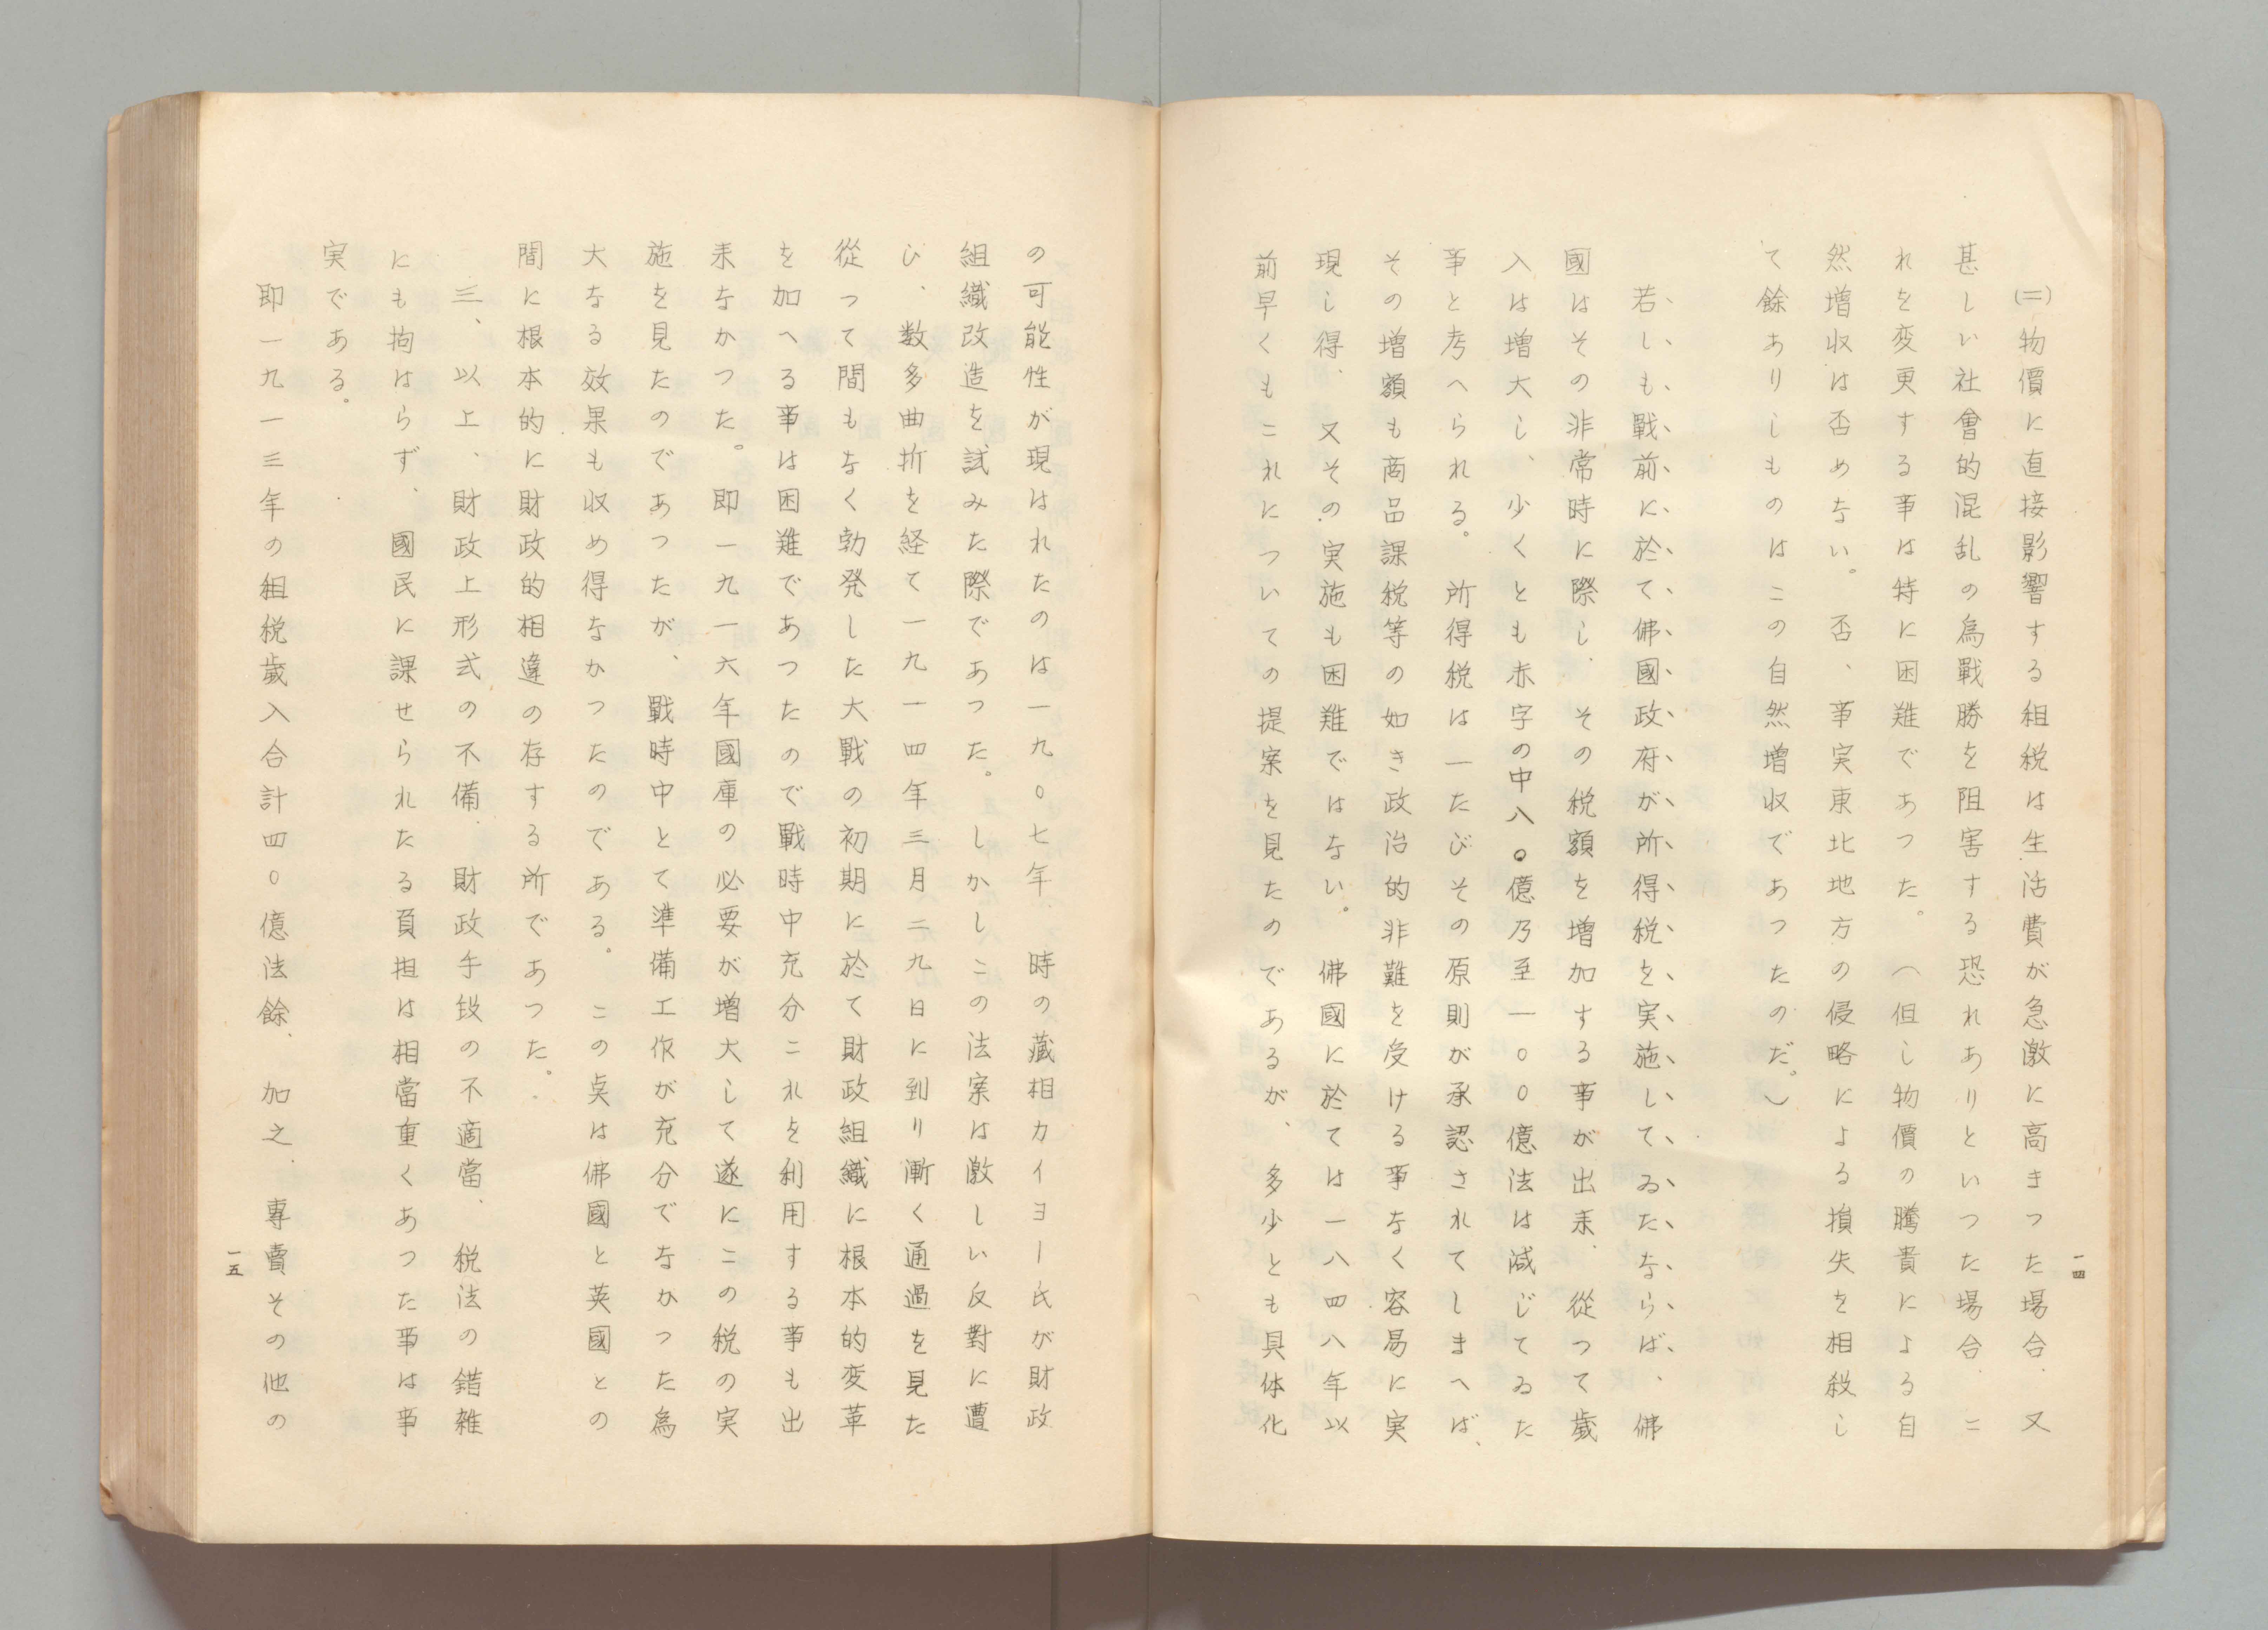 一四
(三)物價に直接影響する租税は生活費が急激に高まった場合、又
甚しい社會的混乱の為戰勝を阻害する恐れありといつた場合、こ
れを変更する事は特に困難であつた。(但し物價の騰貴による自
然増収は否めない。否、事実東北地方の侵略による損失を相殺し
て餘ありしものはこの自然増収であつたのだ。)
若しも戰前に於て佛國政府が所得税を実施してゐたならば、佛
國はその非常時に際し、その税額を増加する事が出来、從つて歳
入は増大し、少くとも赤字の中八〇億乃至一〇〇億法は減じてゐた
事と考へられる。所得税は一たびその原則が承認されてしまへば、
その増額も商品課税等の如き政治的非難を受ける事なく容易に実
現し得、又その実施も困難ではない。佛國に於ては一八四八年以
前早くもこれについての提案を見たのであるが、多少とも具体化
の可能性が現はれたのは一九〇七年、時の藏相カイヨー氏が財政
組織改造を試みた際であつた。しかしこの法案は激しい反對に遭
ひ、数多曲折を経て一九一四年三月二九日に到り漸く通過を見た
從つて間もなく勃発した大戰の初期に於て財政組織に根本的変革
を加へる事は困難であつたので戰時中充分これを利用する事も出
来なかつた。即一九一六年國庫の必要が増大して遂にこの税の実
施を見たのであつたが、戰時中とて準備工作が充分でなかつた為
大なる效果も収め得なかつたのである。この奌は佛國と英國との
間に根本的に財政的相違の存する所であつた。
三、以上、財政上形式の不備、財政手段の不適當、税法の錯雑
にも拘はらず、國民に課せられたる負担は相當重くあつた事は事
実である。
即一九一三年の租税歳入合計四〇億法餘、加之、専賣その他の
一五